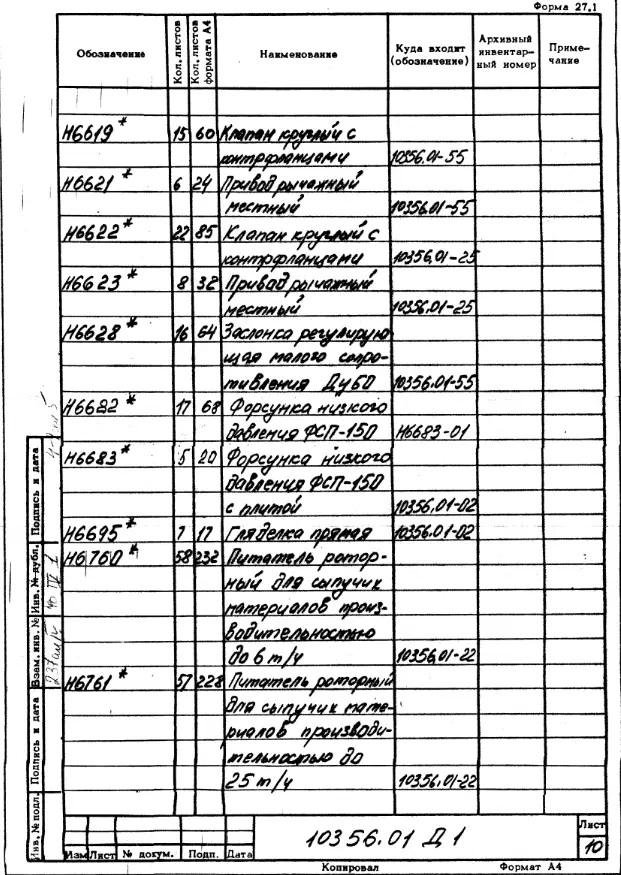 Форма 27.1
Обозначение Кол. листов Кол. листов формата А4 Наименование Куда входит (обозначение) Архивный инвентар-ный номер Приме-чание
Н6619* 15 60 Клапан круглый с
контрфланцами 10356.01-55
Н6621* 6 24 Привод рычажный
местный 10356.01-55
Н6622* 22 85 Клапан круглый с
контрфланцами 10356.01-25
Н6623* 8 32 Привод рычажный
местный 10356.01-25
Н6628* 16 64 Заслонка регулирую
щая малого сопро-
тивления Ду60 10356.01-55
Н6682* 17 68 Форсунка низкого
давления ФСП-150 Н6683-01
Н6683* 5 20 Форсунка низкого
давления ФСП-150
с плитой 10356.01-02
Н6695* 7 17 Гляделка прямая 10356.01-02
Н6760* 58 232 Питатель ротор-
ный для сыпучих
материалов произ-
водительностью
до 6 т/ч 10356.01-22
Н6761* 57 228 Питатель роторный
для сыпучих мате-
риалов производи-
тельностью до
25 т/ч 10356.01-22
Инв. № подл. Подпись и дата Взам. инв. № Инв. № дубл. Подпись и дата
10356.01 Д1
Лист
10
Изм Лист № докум. Подп. Дата
Копировал Формат А4